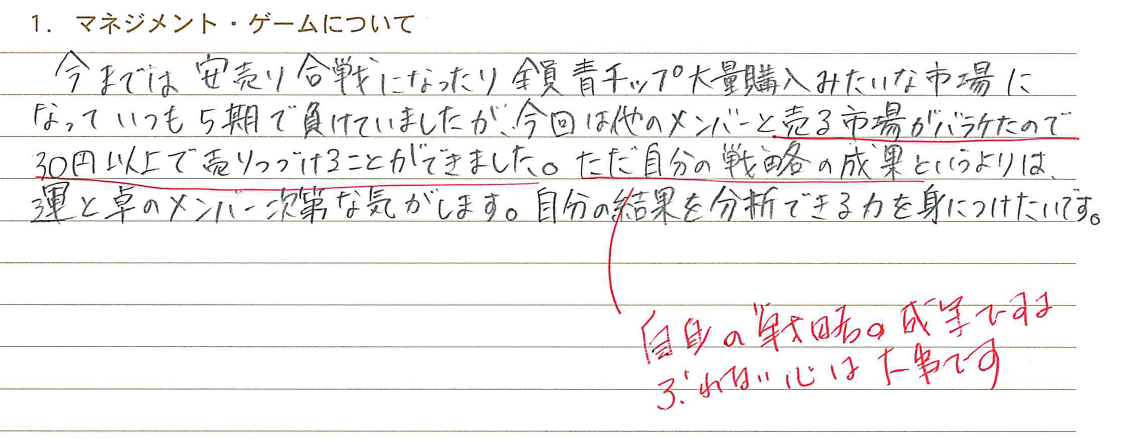 1. マネジメント・ゲームについて
今までは安売り合戦になったり全員青チップ大量購入みたいな市場に
なっていつも5期で負けていましたが、今回は他のメンバーと売る市場がバラケたので
30円以上で売りつづけることができました。ただ自分の戦略の成果というよりは、
運と卓のメンバー次第な気がします。自分の結果を分析できる力を身につけたいです。
自身の戦略の成果ですよ
ぶれない心は大事です